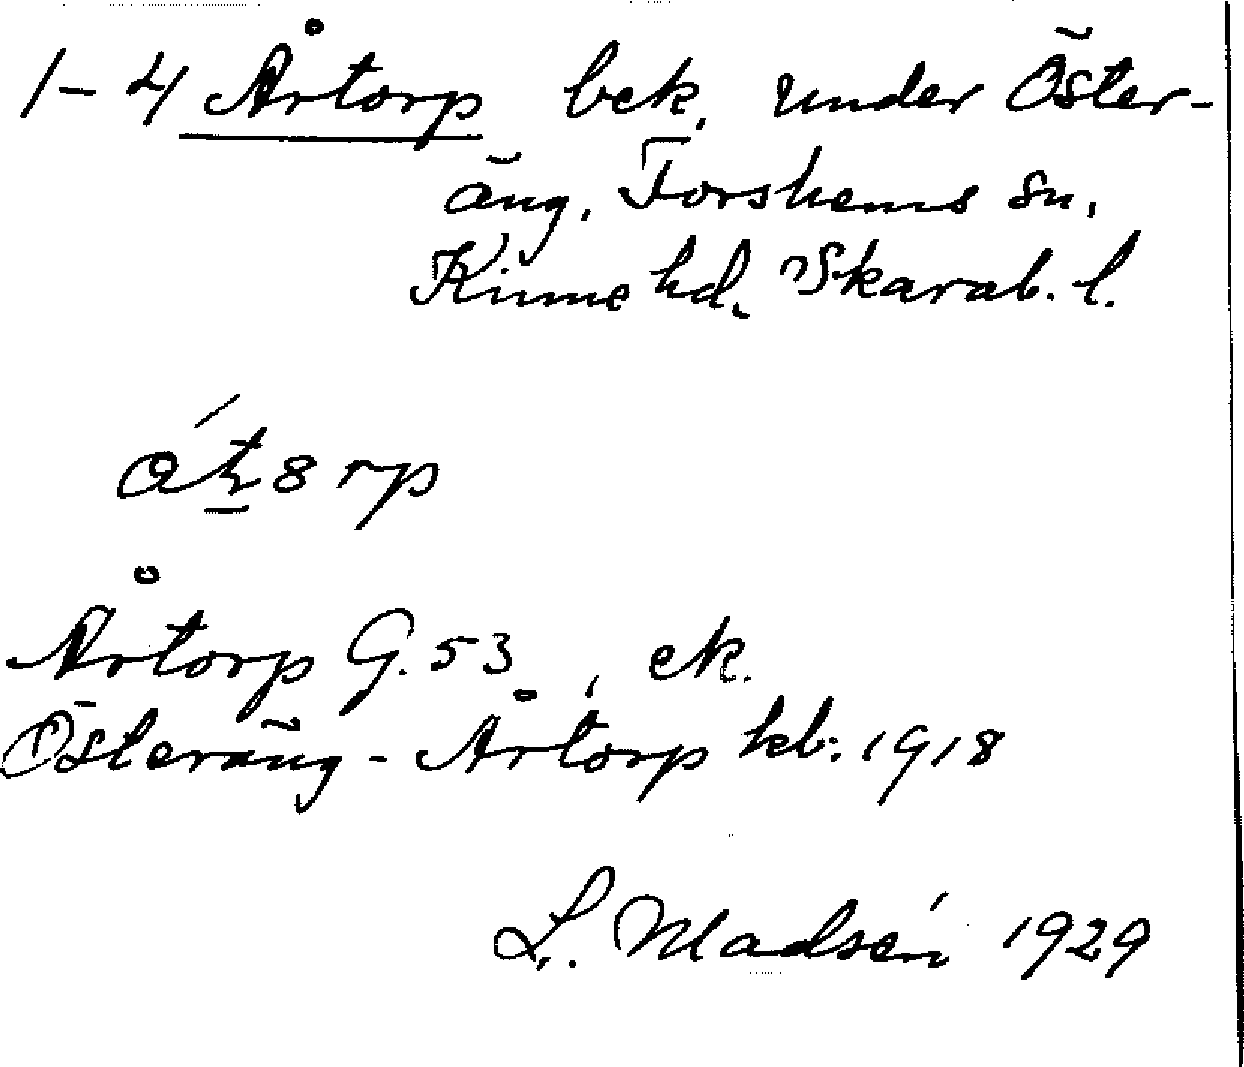 1-4 Årtorp bek. under Öster-
äng, Forshems sn,
Kinne hd. Skarab. l.
Årtorp G. 53, ek.
Österäng-Årtorp kb. 1918
L. Madsén 1929